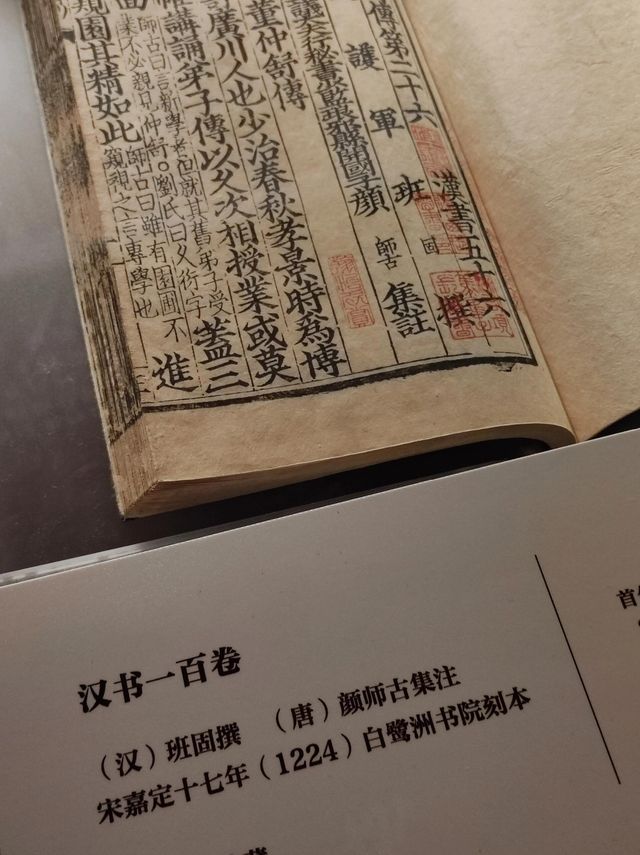 傳第二十六 漢書五十六
護軍班固撰
議大夫秘書少監琅邪縣開國子顏師古集註
董仲舒傳
廣川人也少治春秋孝景時為博
帷講誦弟子傳以久次相授業或莫
面師古曰言新學者但就其舊弟子受業不必親見仲舒○劉氏曰久衍字蓋三
窺園其精如此師古曰雖有園圃不窺視之言專學也進
汉书一百卷
（汉）班固撰 （唐）颜师古集注
宋嘉定十七年（1224）白鹭洲书院刻本
首